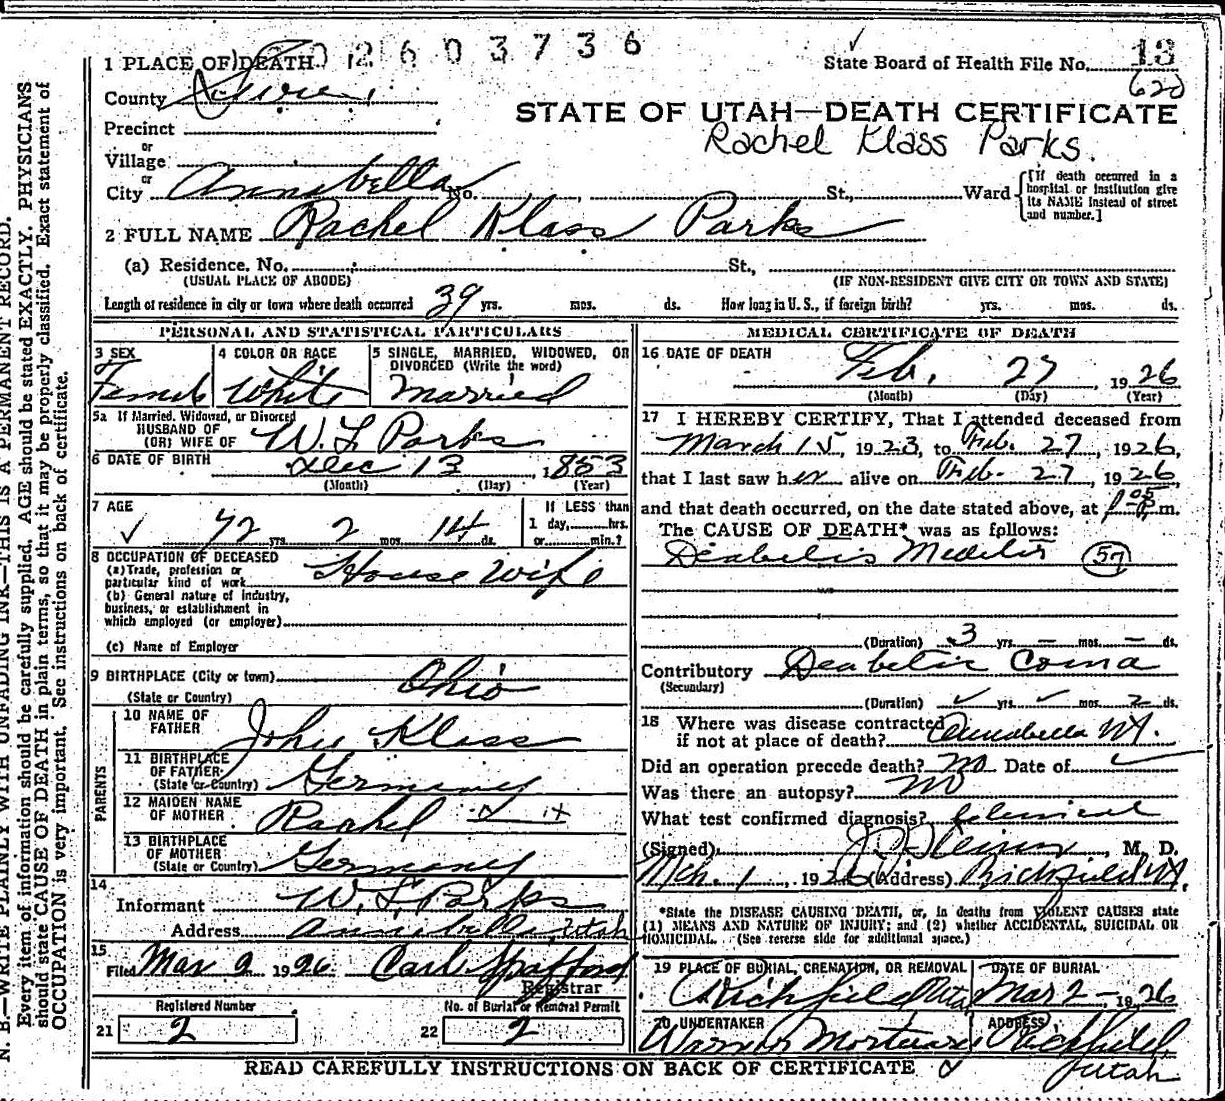 1 PLACE OF DEATH 02603736 State Board of Health File No. 13
County Sevier 620
STATE OF UTAH—DEATH CERTIFICATE
Precinct
Rachel Klass Parks.
or
Village
or
City Annabella No. St., Ward [If death occurred in a hospital or institution give its NAME instead of street and number.]
2 FULL NAME Rachel Klass Parks
(a) Residence. No. St.,
(USUAL PLACE OF ABODE) (IF NON-RESIDENT GIVE CITY OR TOWN AND STATE)
Length of residence in city or town where death occurred 39 yrs. mos. ds. How long in U. S., if foreign birth? yrs. mos. ds.
PERSONAL AND STATISTICAL PARTICULARS
3 SEX 4 COLOR OR RACE 5 SINGLE, MARRIED, WIDOWED, OR
DIVORCED (Write the word)
Female White Married
5a If Married, Widowed, or Divorced
HUSBAND OF
(OR) WIFE OF W. L. Parks
6 DATE OF BIRTH Dec 13, 1853
(Month) (Day) (Year)
7 AGE If LESS than
1 day, hrs.
✓ 72 yrs. 2 mos. 14 ds. or min.?
8 OCCUPATION OF DECEASED
(a) Trade, profession or
particular kind of work House Wife
(b) General nature of industry,
business, or establishment in
which employed (or employer)
(c) Name of Employer
9 BIRTHPLACE (City or town) Ohio
(State or Country)
PARENTS
10 NAME OF
FATHER John Klass
11 BIRTHPLACE
OF FATHER
(State or Country) Germany
12 MAIDEN NAME
OF MOTHER Rachel
13 BIRTHPLACE
OF MOTHER
(State or Country) Germany
14
Informant W. L. Parks
Address Annabella, Utah
15
Filed Mar 2 1926 Carl Spafford
Registrar
Registered Number No. of Burial or Removal Permit
21 2 22 2
MEDICAL CERTIFICATE OF DEATH
16 DATE OF DEATH
Feb. 27, 1926
(Month) (Day) (Year)
17 I HEREBY CERTIFY, That I attended deceased from
March 15, 1923, to Feb. 27, 1926,
that I last saw her alive on Feb. 27, 1926,
and that death occurred, on the date stated above, at m.
The CAUSE OF DEATH* was as follows:
Deabetis Medelis 57
(Duration) 3 yrs. – mos. – ds.
Contributory Deabetic Coma
(Secondary)
(Duration) ✓ yrs. ✓ mos. 2 ds.
18 Where was disease contracted
if not at place of death? Annabella Ut.
Did an operation precede death? No Date of
Was there an autopsy? No
What test confirmed diagnosis?
(Signed) M. D.
Mch. 1, 1926 (Address) Richfield Ut.
*State the DISEASE CAUSING DEATH, or, in deaths from VIOLENT CAUSES state
(1) MEANS AND NATURE OF INJURY; and (2) whether ACCIDENTAL, SUICIDAL OR
HOMICIDAL. (See reverse side for additional space.)
19 PLACE OF BURIAL, CREMATION, OR REMOVAL DATE OF BURIAL
Richfield Utah Mar 2 – 1926
20 UNDERTAKER ADDRESS
Warner Mortuary Richfield,
Utah
READ CAREFULLY INSTRUCTIONS ON BACK OF CERTIFICATE
N. B.—WRITE PLAINLY WITH UNFADING INK—THIS IS A PERMANENT RECORD.
Every item of information should be carefully supplied. AGE should be stated EXACTLY. PHYSICIANS
should state CAUSE OF DEATH in plain terms, so that it may be properly classified. Exact statement of
OCCUPATION is very important. See instructions on back of certificate.